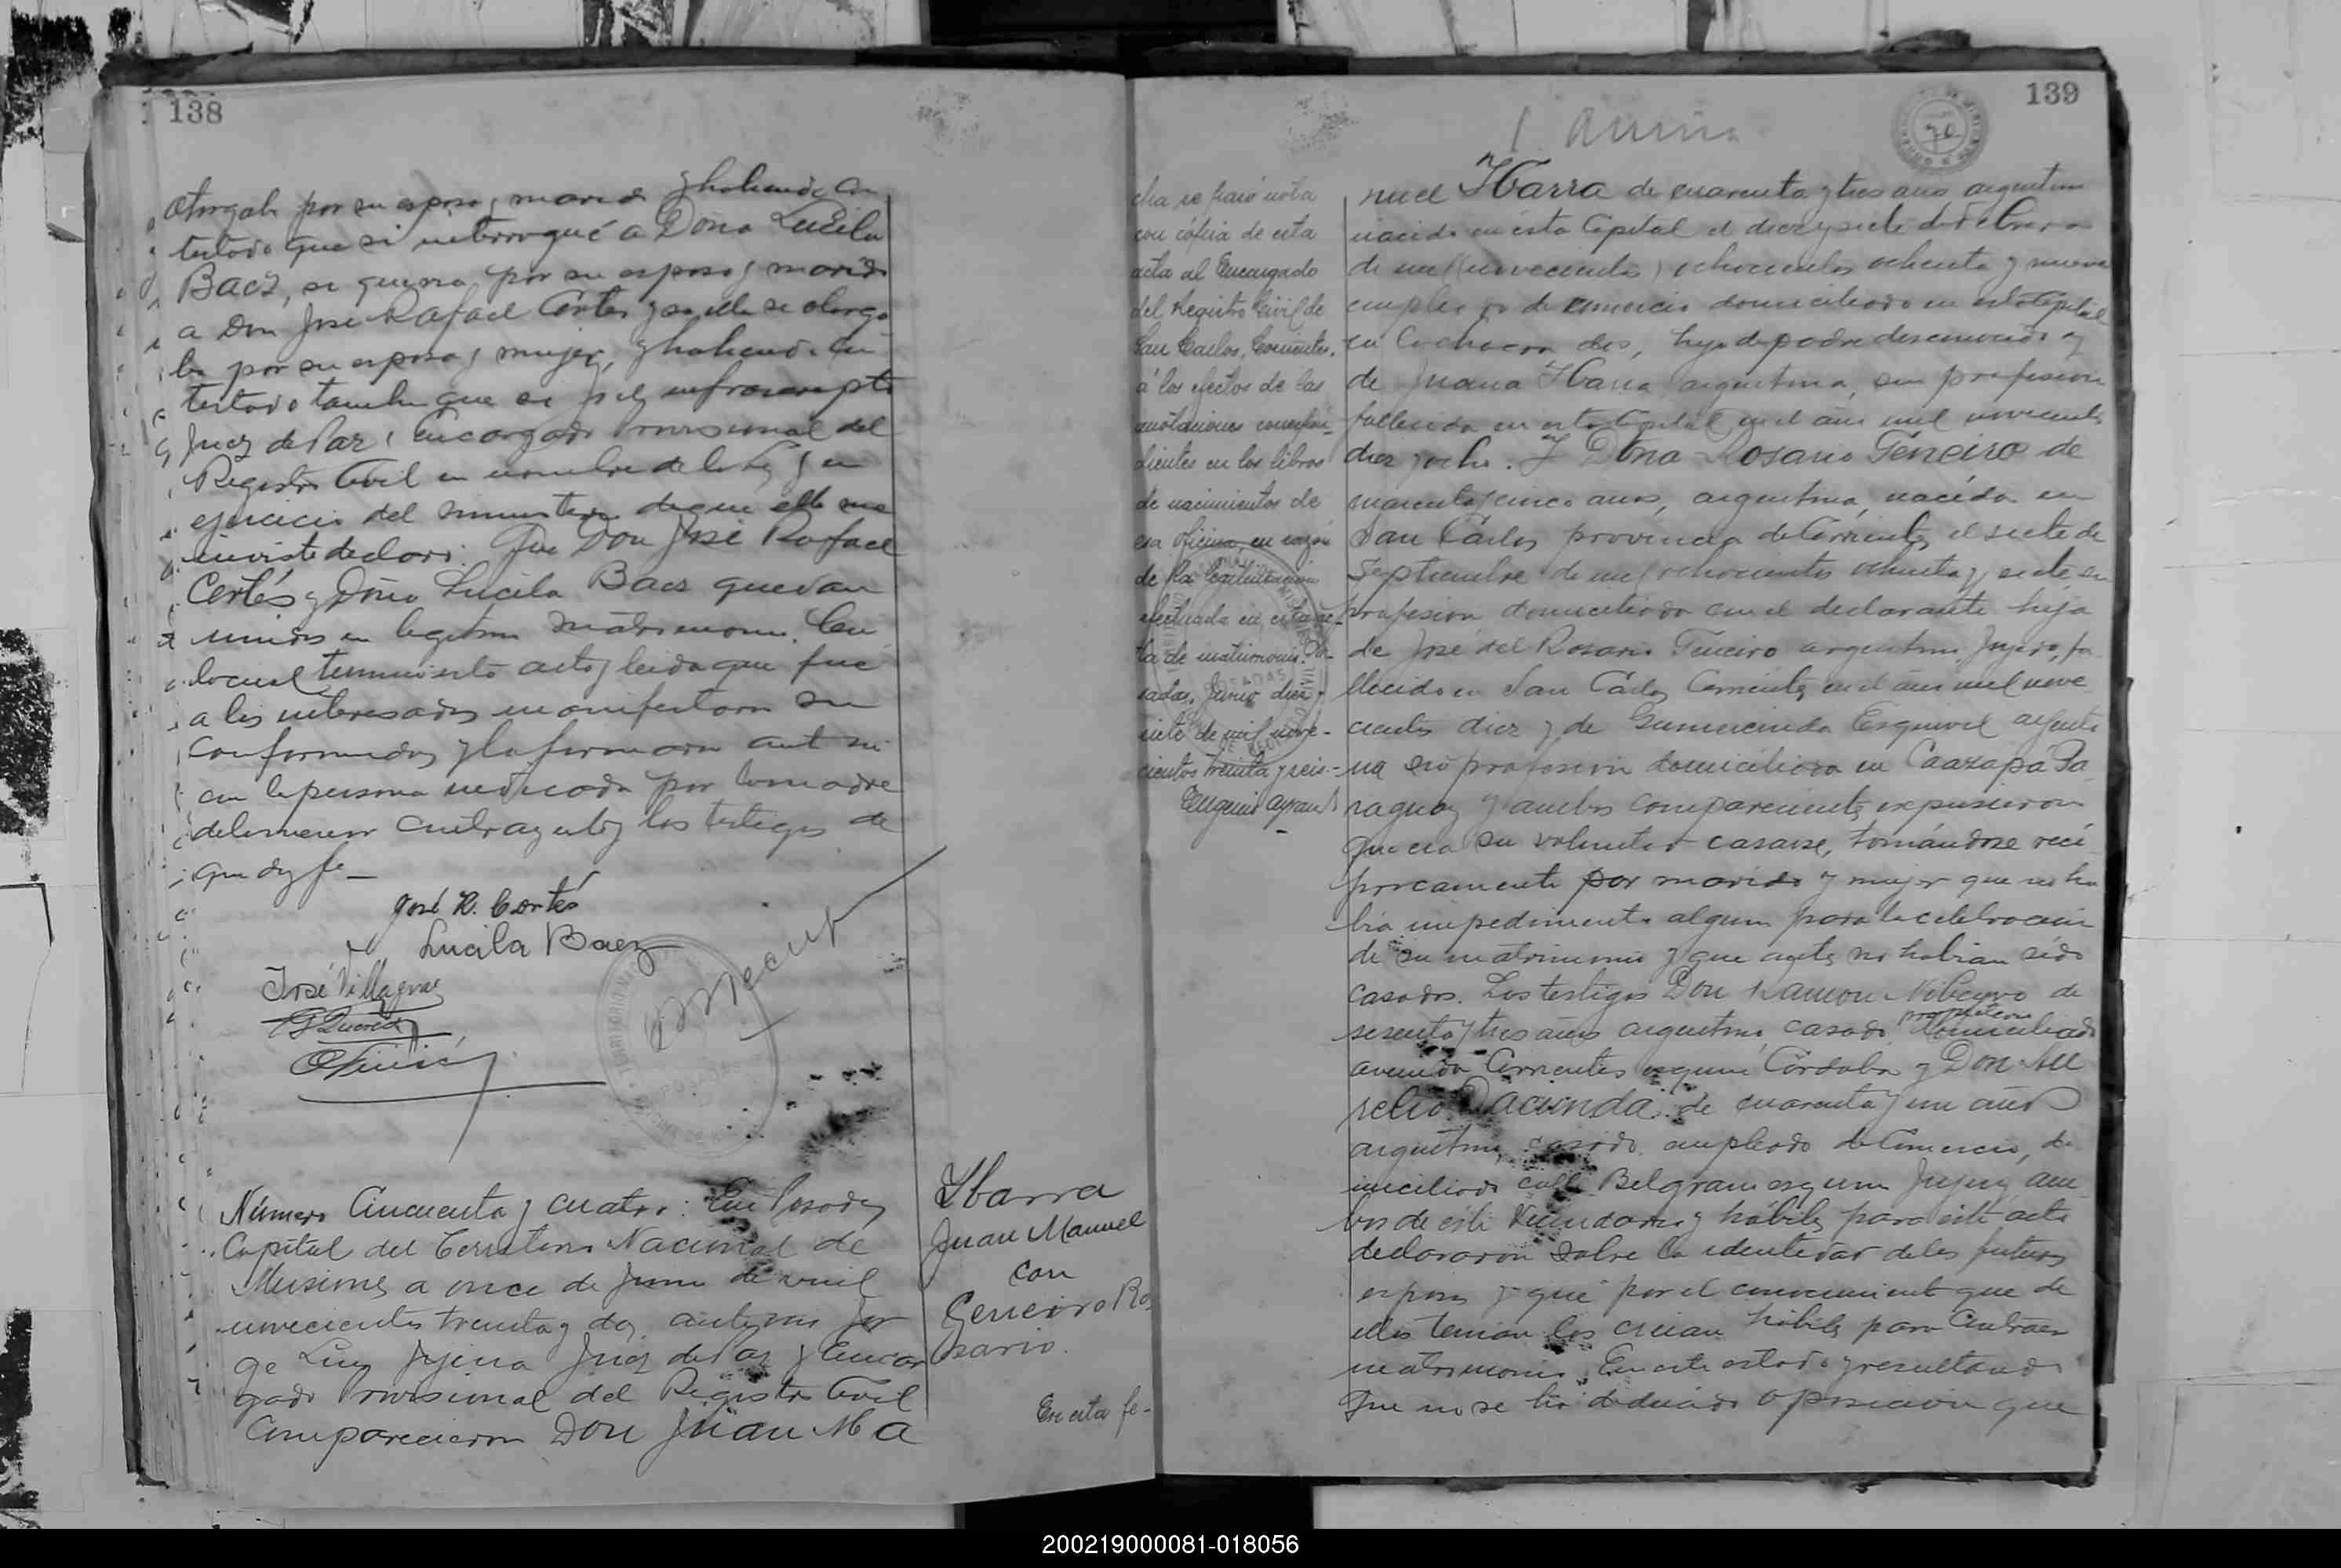 138
otorgaba por su esposo y marido y habiendo con
testado que si interrogué a Doña Lucila
Baez, si queria por su esposo y marido
a Don José Rafael Cortés y si ella se otorga
ba por su esposa y mujer, y habiendo con
testado tambien que si yo el infrascripto
Juez de Paz y Encargado Provisional del
Registro Civil en nombre de la Ley y en
ejercicio del ministerio de que ella me
inviste declaro: Que Don José Rafael
Cortés y Doña Lucila Baez quedan
unidos en legitimo matrimonio. Con
lo cual termino este acto y leida que fue
a los interesados manifestaron su
conformidad y la firmaron ante mi
con la persona indicada por la madre
del menor contrayente y los testigos de
que doy fe
José R. Cortés
Lucila Baez
José Villagra
Número Cincuenta y cuatro: En Posadas
Capital del Territorio Nacional de
Misiones a once de Junio de mil
novecientos treinta y dos, ante mi Jor
ge Luis Juez de Paz y Encar
gado Provisional del Registro Civil
Comparecieron Don Juan Ma
Ibarra
Juan Manuel
con
Geneiro Ro
sario.
En esta fe-
139
70
cha se pasó nota
con cópia de esta
acta al Encargado
del Registro Civil de
San Carlos, Corrientes,
á los efectos de las
anotaciones correspon-
dientes en los libros
de nacimientos de
esa oficina, en razón
de la legitimación
efectuada en esta ac-
ta de matrimonio. Po-
sadas, Junio diez y
siete de mil nove-
cientos treinta y seis.-
Eugenio
nuel Ibarra de cuarenta y tres años argentino
nacido en ésta Capital el diez y siete de Febrero
de mil (novecientos) ochocientos ochenta y nueve
empleado de comercio domiciliado en esta Capital
en dos, hijo de padre desconocido y
de Juana Ibarra argentina, sin profesion
fallecida en esta Capital en el año mil novecientos
diez y ocho. Y Doña Rosario Geneiro de
cuarenta y cinco años, argentina, nacida en
San Cárlos provincia de Corrientes el siete de
Septiembre de mil ochocientos ochenta y siete, sin
profesion domiciliada con el declarante hija
de José del Rosario Geneiro argentino, fa
llecido en San Cárlos Corrientes en el año mil nove
cientos diez y de Gumercinda Esquivel argenti
na sin profesion domiciliada en Caazapá Pa
raguay y ambos comparecientes expusieron
que era su voluntad casarse, tomándose recí
procamente por marido y mujer que no ha
bia impedimento alguno para la celebracion
de su matrimonio y que antes no habian sido
casados. Los testigos Don Ramon de
sesenta y tres años argentino, casado, propietario domiciliado
avenida Corrientes esquina Córdoba y Don Au
relio de cuarenta y un años
argentino, casado, empleado de Comercio, do
miciliado calle Belgrano esquina Jujuy, am
bos de este vecindario y hábiles para este acto
declararon sobre la identidad de los futuros
esposos y que por el conocimiento que de
ellos tenian los creian hábiles para contraer
matrimonio. En este estado y resultando
que no se ha deducido oposicion que
200219000081-018056